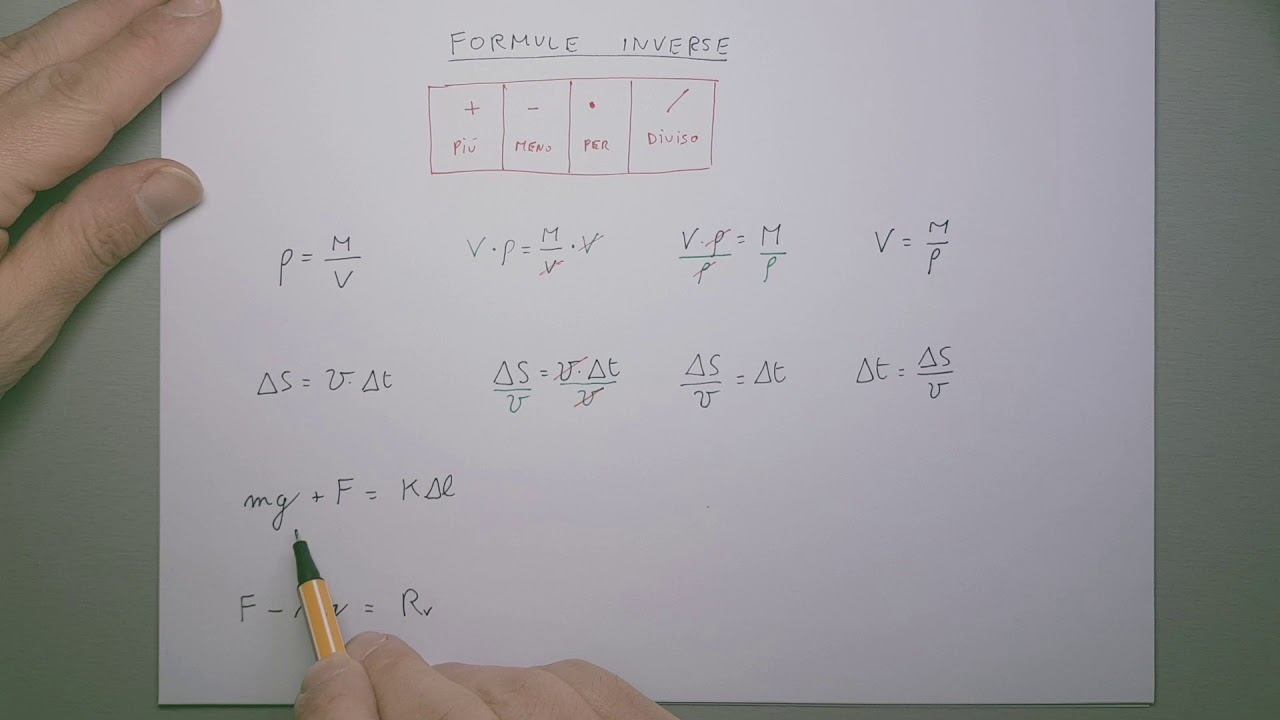 FORMULE INVERSE
+ - • /
PIÚ MENO PER DIVISO
ρ = M/V V·ρ = M/V · V V·ρ/ρ = M/ρ V = M/ρ
ΔS = v·Δt ΔS/v = v·Δt/v ΔS/v = Δt Δt = ΔS/v
mg + F = KΔl
F - = Rv